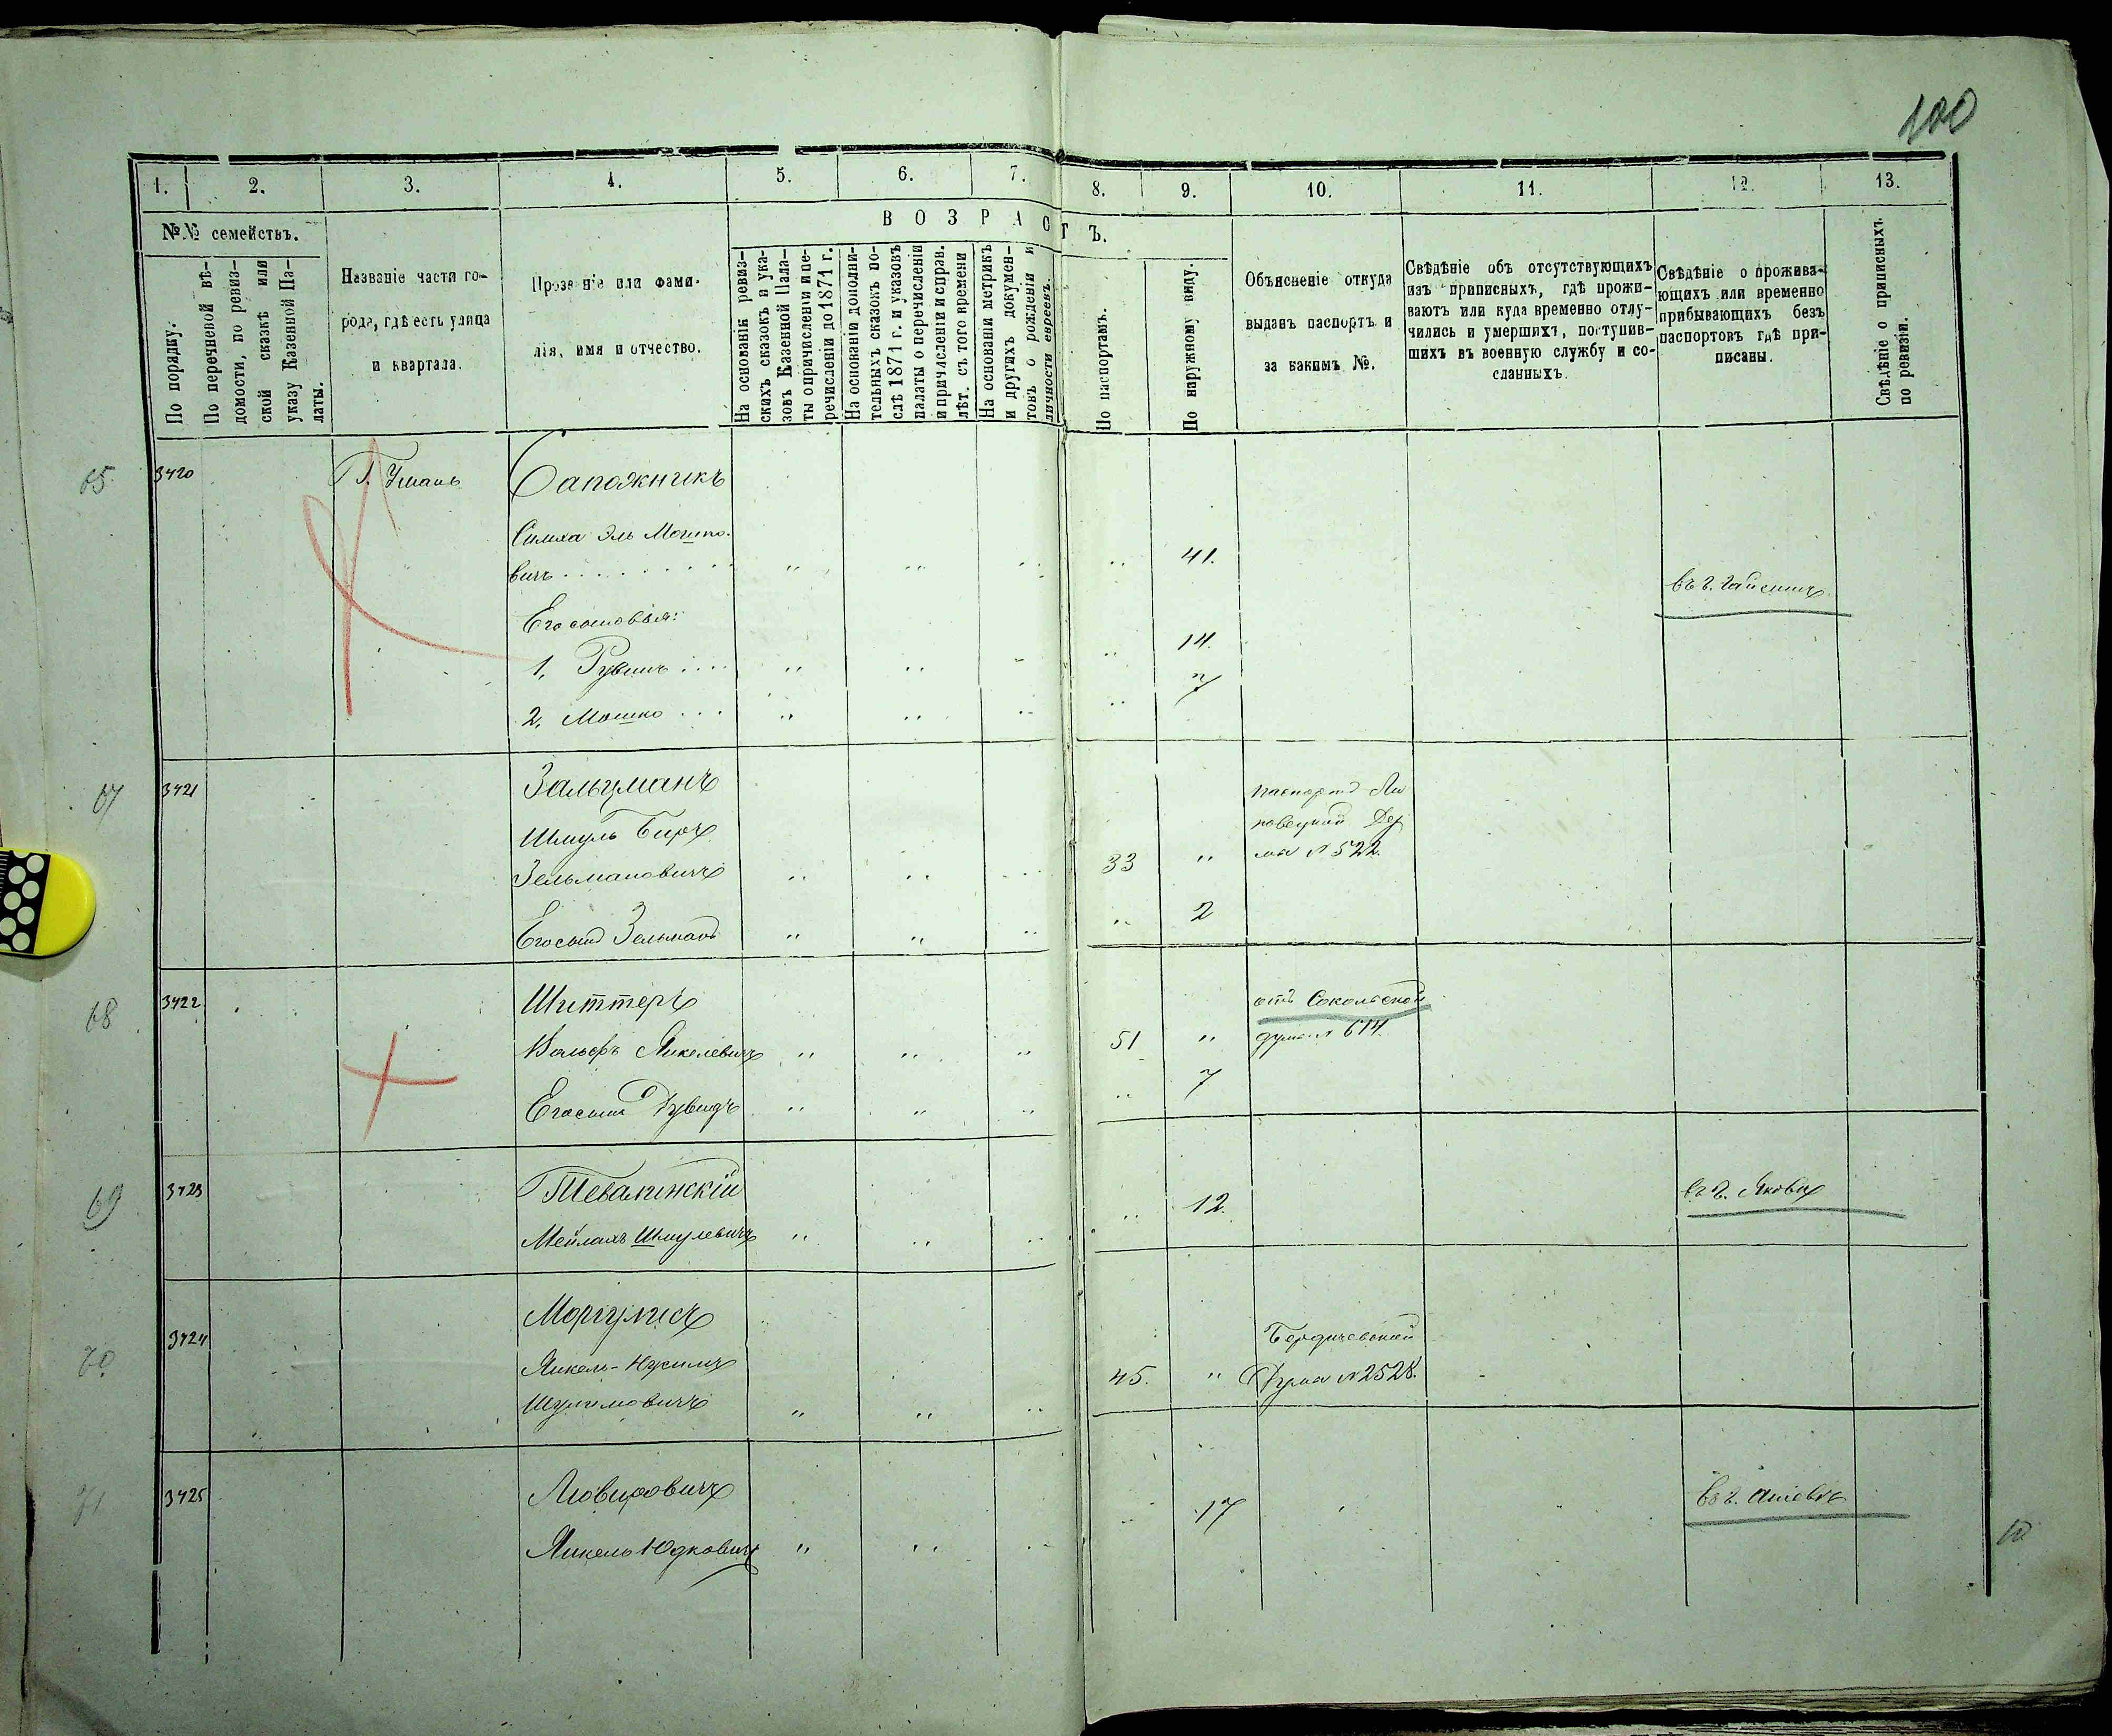 100
1. 2. 3. 4. 5. 6. 7. 8. 9. 10. 11. 12. 13.
№№ семействъ.
По порядку.
По перечневой вѣ-
домости, по ревиз-
ской сказкѣ или
указу Казенной Па-
латы.
Названіе части го-
рода, гдѣ есть улица
и квартала.
Прозваніе или фами-
лія, имя и отчество.
ВОЗРАСТЪ.
На основаніи ревиз-
скихъ сказокъ и ука-
зовъ Казенной Пала-
ты о причислении и пе-
речислении до 1871 г.
На основаніи дополни-
тельныхъ сказокъ по-
слѣ 1871 г. и указовъ
палаты о перечислении
и причислении и справ.
лѣт. съ того времени
На основаніи метрикъ
и другихъ докумен-
товъ о рожденіи и
личности евреевъ.
По паспортамъ.
По наружному виду.
Объясненіе откуда
выданъ паспортъ и
за какимъ №.
Свѣдѣніе объ отсутствующихъ
изъ приписныхъ, гдѣ прожи-
ваютъ или куда временно отлу-
чились и умершихъ, поступив-
шихъ въ военную службу и со-
сланныхъ.
Свѣдѣніе о прожива-
ющихъ или временно
прибывающихъ безъ
паспортовъ гдѣ при-
писаны.
Свѣдѣніе о приписныхъ
по ревизіи.
65 3420 Г. Умань Сапожникъ
Симха Эль Мошко-
вичъ . . . . . . . . . " " " " 41.
въ г. Гайсинѣ
Его сыновья:
1, Рувинъ . . . . " " " " 14.
2, Мошко . . . " " " " 7
67 3421 Зальцманъ
паспортъ Ли
Шмуль Беръ
повецкой Ду
Зельмановичъ " " " 33 " мы № 522.
Его сынъ Зельманъ " " " " 2
68 3422 Шиттеръ
отъ Сокольской
Вольфъ Янкелевичъ " " " 51 " думы № 614.
Его сынъ Дувидъ " " " " 7
69 3423
Мейлахъ Шмулевичъ " " " " 12.
70. 3424 Моргулисъ
Бердичевской
Янкель-
Шулимовичъ " " " 45. " Думы № 2528.
71 3425
Янкель Юдковичъ " " " " 17